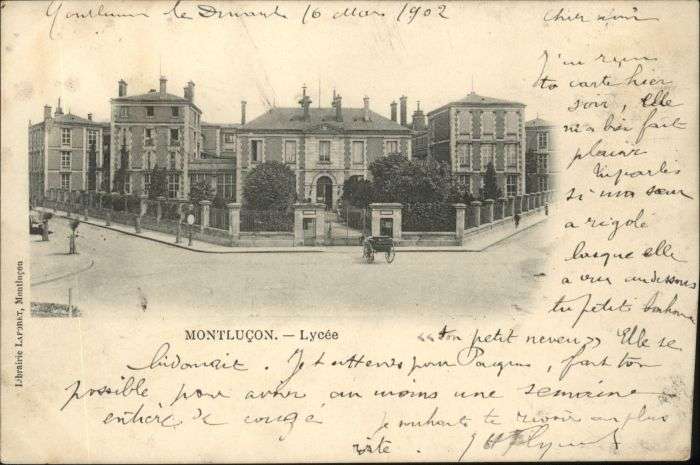 Montluçon le Dimanche 16 Mars 1902
Cher
J'ai reçu
ta carte hier
soir, elle
m'a bien fait
plaisir
si ma sœur
a rigolé
lorsque elle
a vu au dessous
tu petit bonhomme
MONTLUÇON. — Lycée
«ton petit neveu» Elle se
bidonait. Je t'attends pour Pâques, fait ton
possible pour avoir au moins une semaine
entière de congé
je souhaite te revoir au plus
vite.
Librairie LAFERET, Montluçon